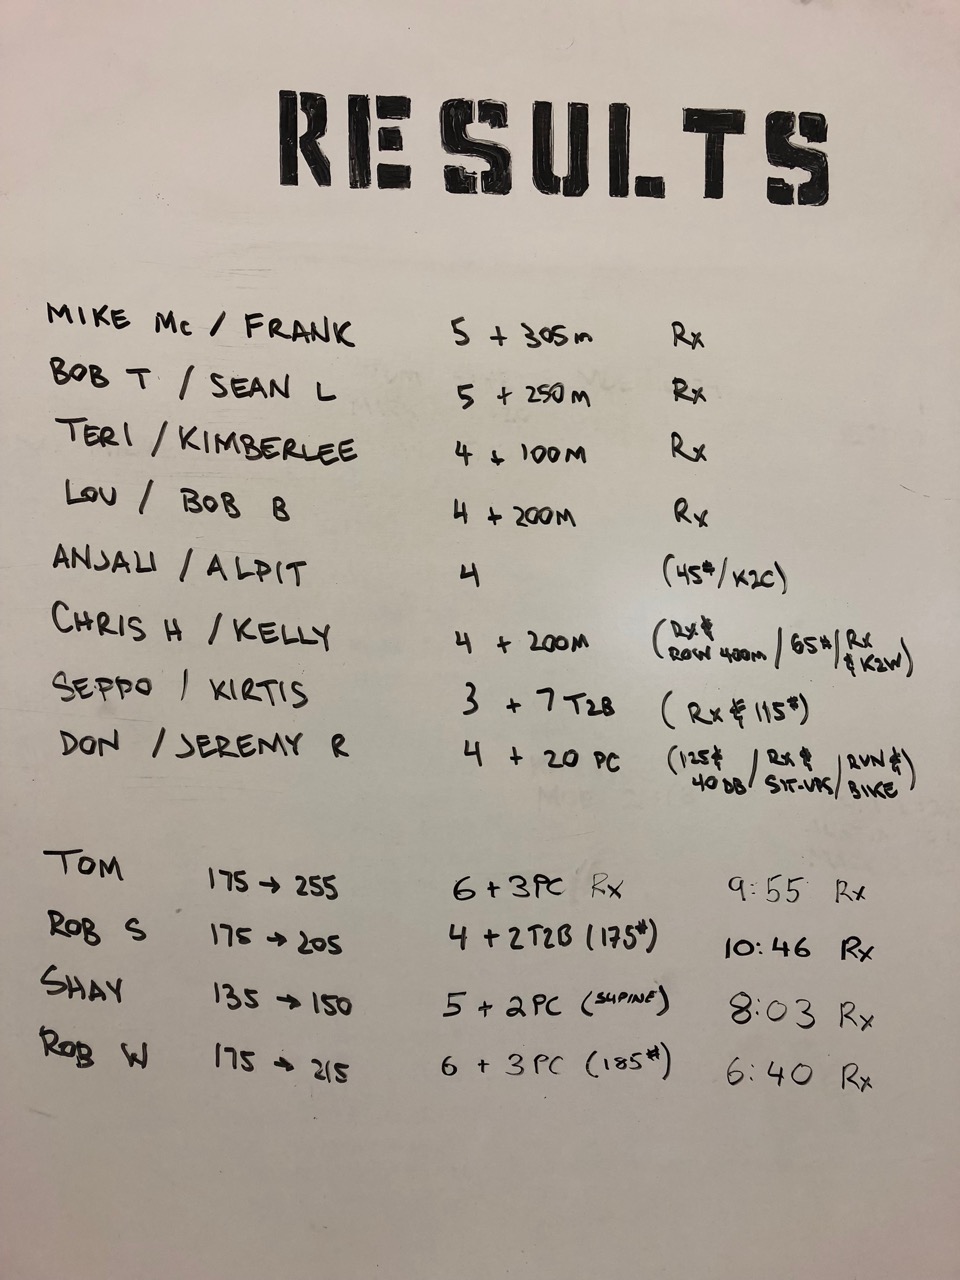 RESULTS
MIKE Mc / FRANK 5 + 305m Rx
BOB T / SEAN L 5 + 250M Rx
TERI / KIMBERLEE 4 + 100M Rx
LOU / BOB B 4 + 200M Rx
ANJALI / ALPIT 4 (45# / K2C)
CHRIS H / KELLY 4 + 200M (Rx & ROW 400M / 65# / Rx & K2W)
SEPPO / KIRTIS 3 + 7 T2B (Rx & 115#)
DON / JEREMY R 4 + 20 PC (125& 40 DB / Rx & SIT-UPS / RUN & BIKE)
TOM 175 → 255 6 + 3PC Rx 9:55 Rx
ROB S 175 → 205 4 + 2T2B (175#) 10:46 Rx
SHAY 135 → 150 5 + 2PC (SUPINE) 8:03 Rx
ROB W 175 → 215 6 + 3PC (185#) 6:40 Rx